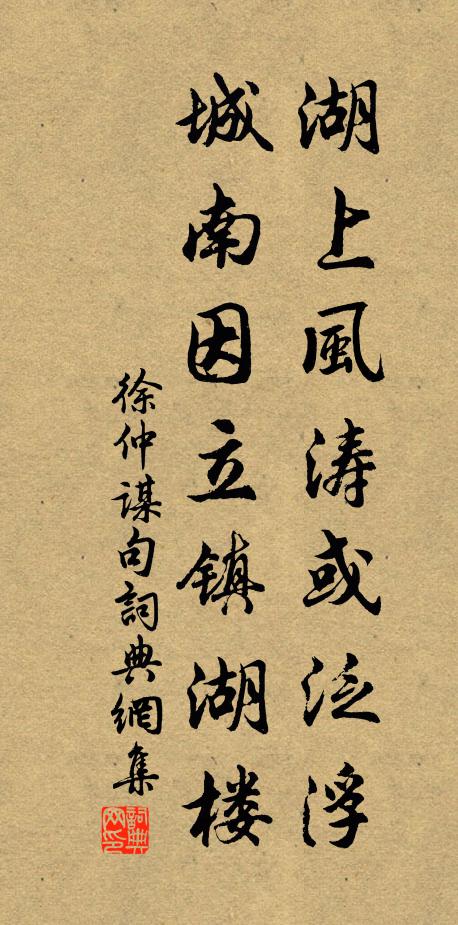 湖上風涛或泛浮
城南因立镇湖楼
徐仲謀句詞典網集
詞典网印